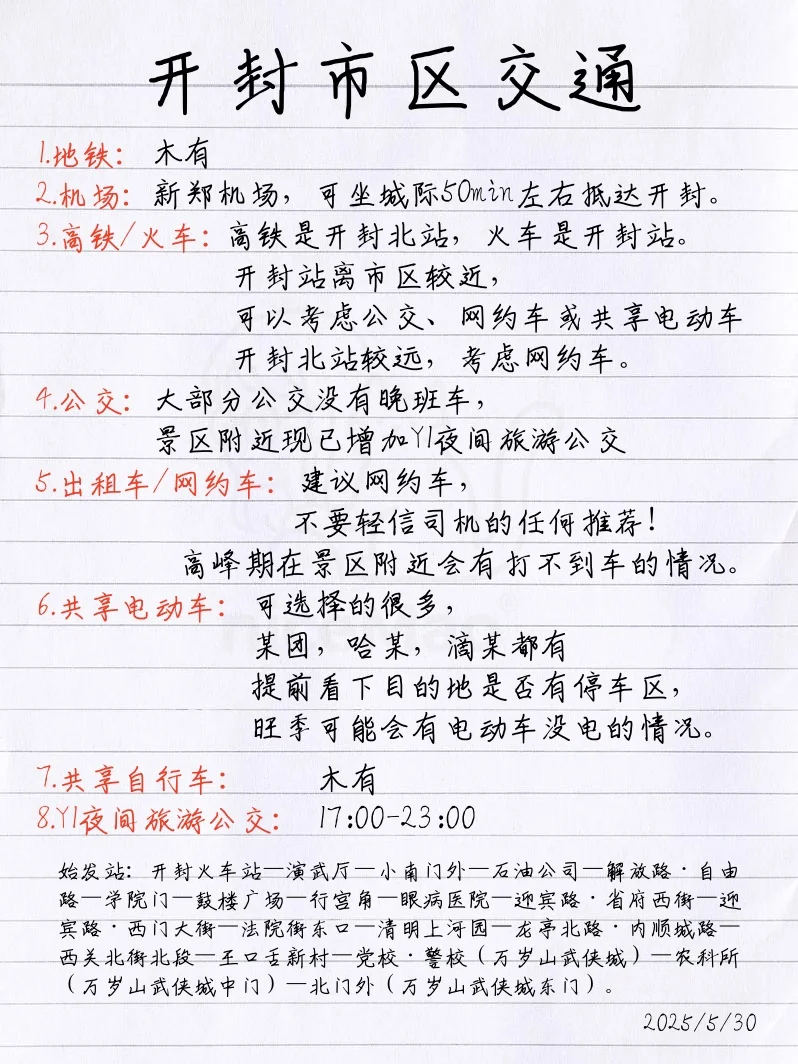 开封市区交通
1.地铁： 木有
2.机场：新郑机场，可坐城际50min左右抵达开封。
3.高铁/火车：高铁是开封北站，火车是开封站。
开封站离市区较近，
可以考虑公交、网约车或共享电动车
开封北站较远，考虑网约车。
4.公交：大部分公交没有晚班车，
景区附近现已增加Y1夜间旅游公交
5.出租车/网约车：建议网约车，
不要轻信司机的任何推荐！
高峰期在景区附近会有打不到车的情况。
6.共享电动车：可选择的很多，
某团，哈某，滴某都有
提前看下目的地是否有停车区，
旺季可能会有电动车没电的情况。
7.共享自行车： 木有
8.Y1夜间旅游公交： 17:00-23:00
始发站：开封火车站—演武厅—小南门外—石油公司—解放路·自由
路—学院门—鼓楼广场—行宫角—眼病医院—迎宾路·省府西街—迎
宾路·西门大街—法院街东口—清明上河园—龙亭北路·内顺城路—
西关北街北段—王口舌新村—党校·警校（万岁山武侠城）—农科所
（万岁山武侠城中门）—北门外（万岁山武侠城东门）。
2025/5/30